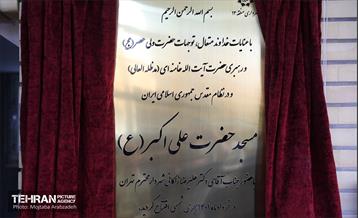 بسم الله الرحمن الرحیم
با عنایات خداوند متعال، توجهات حضرت ولی عصر (عج)
و رهبری حضرت آیت الله خامنه ای (مدظله العالی)
و در نظام مقدس جمهوری اسلامی ایران
مسجد حضرت علی اکبر (ع)
با حضور جناب آقای دکتر علیرضا زاکانی شهردار محترم تهران
افتتاح گردید.
TEHRAN PICTURE AGENCY
Photo: Mojtaba Arabzadeh